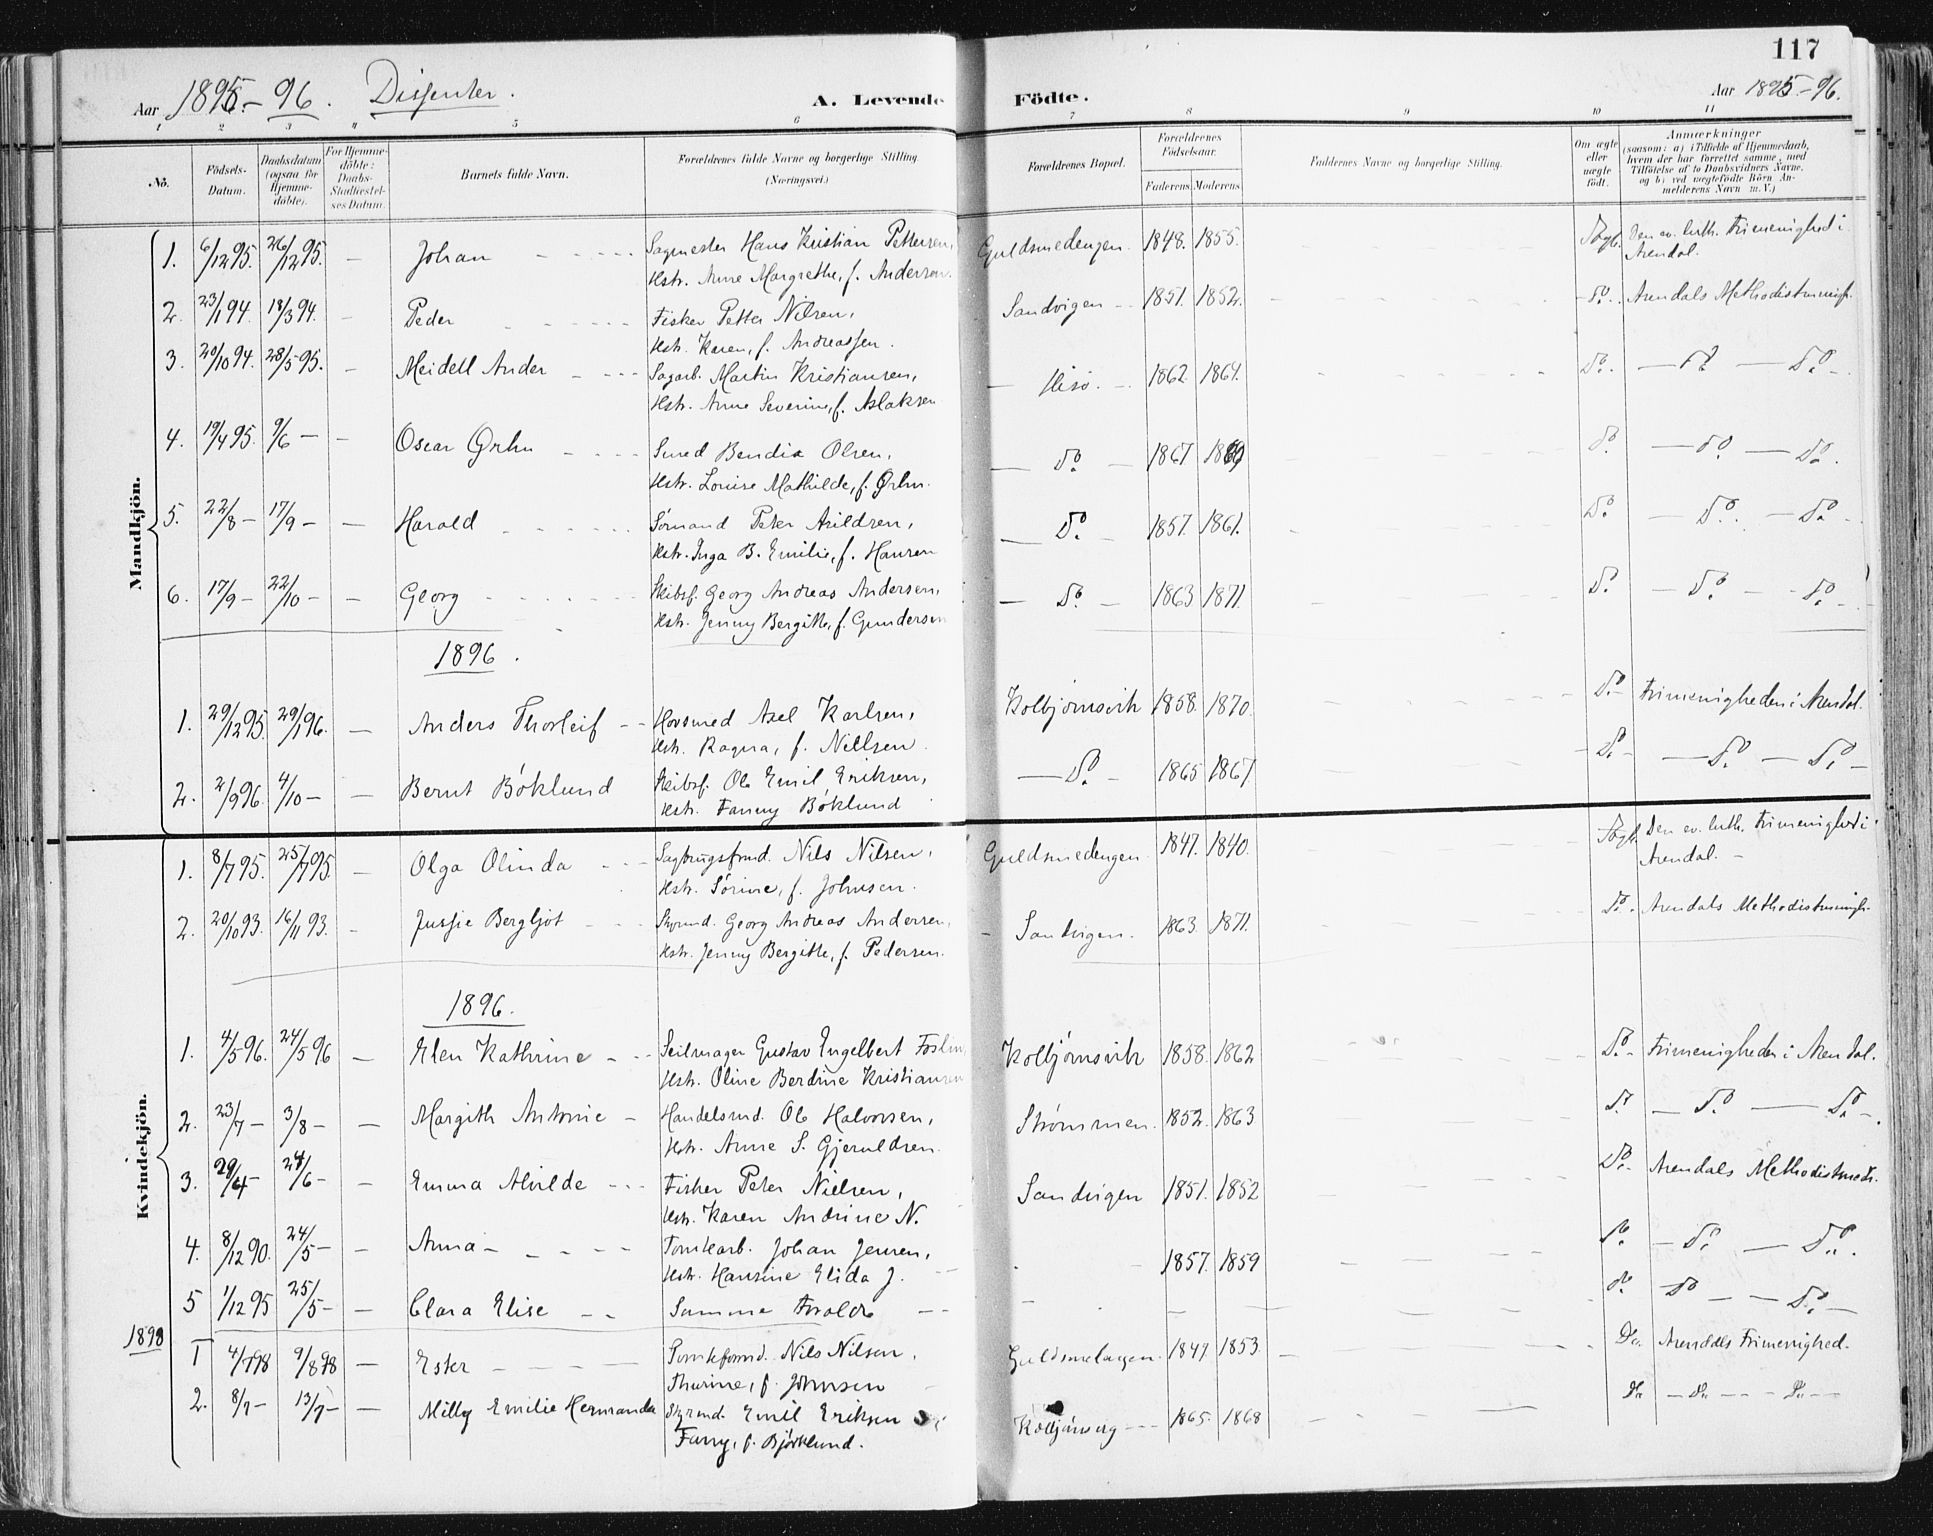 117
Aar 1895-96. Dissenter.
A. Levende Födte.
Aar 1895-96.
1 2 3 4 5 6 7 8 9 10 11
No.
Födsels-Datum.
Daabsdatum (ogsaa for Hjemme-döbte).
For Hjemme-döbte: Daabs-Stadfæstel-ses Datum.
Barnets fulde Navn.
Forældrenes fulde Navne og borgerlige Stilling. (Næringsvei.)
Forældrenes Bopæl.
Forældrenes Födselsaar.
Faderens. Moderens.
Faddernes Navne og borgerlige Stilling.
Om ægte eller uægte födt.
Anmærkninger
(saasom: a) i Tilfælde af Hjemmedaab,
hvem der har forrettet samme, med
Tilföielse af to Daabsvidners Navne,
og b) ved uægtefödte Börn An-
melderens Navn m. V.)
Mandkjön.
1. 6/12 95. 26/12 95. — Johan Sagmester Hans Kristian Pettersen, Guldsmedengen. 1848. 1855. Den ev. luth. Frimenighed i
Hstr. Anne Margrethe, f. Andersen. Arendal.
2. 23/1 94. 18/3 94. — Peder Fisker Petter Nilsen, Sandvigen 1851. 1852. do. Arendals Methodistmenigh.
Hstr. Karen, f. Andreassen.
3. 20/10 94. 28/5 95. — Meidell Ander Sagarb. Martin Kristiansen, Hisö. 1862. 1864. Do. — do — Do. —
Hstr. Anne Severine, f. Aslaksen
4. 19/4 95. 9/6 — — Oscar Ørhn Smed Bendix Olsen, — Do. — 1867 do. — do. — Do.
Hstr. Louise Mathilde, f. Ørhn.
5. 22/8 — 17/9 — — Harald Sömand Peter Arildsen, — Do. — 1857. 1861. Do — Do. — Do. —
Hstr. Inga B. Emilie, f. Hansen
6. 17/9 — 22/10 — — Georg Skibsf. Georg Andreas Andersen, — Do. — 1863 1871. Do — Do. — do. —
Hstr. Jenny Bergitte, f. Gundersen
1896.
1. 29/12 95. 29/1 96. — Anders Thorleif — Hovsmed Axel Karlsen, Kolbjörnsvik 1858. 1870. Do. — Frimenigheden i Arendal.
Hstr. Ragna, f. Nillsen.
2. 2/9 96. 4/10 — — Bernt Böklund Skibsf. Ole Emil Eriksen, — Do. — 1865 1867. — Do. — — Do. — Do. —
Hstr. Fanny Böklund
Kvindekjön.
1. 8/7 95. 25/7 95. — Olga Olinda Sagbrugsfmd. Nils Nilsen, Guldsmedengen. 1847. 1840. Den ev. luth. Frimenighed i
Hstr. Sörine, f. Johnsen. Arendal. —
2. 20/10 93. 16/11 93. — Jussie Bergljot Georg Andreas Andersen, Sandvigen. 1863. 1871. Do. Arendals Methodistmenigh.
Hstr. Jenny Bergitte, f. Pedersen.
1896.
1. 4/5 96. 24/5 96 — Elen Kathrine Seilmager Gustav Engelbert Kolbjörnsvik 1858. 1862 Do. — Frimenigheden i Arendal.
Hstr. Oline Berdine Kristiansen
2. 23/7 — 3/8 — — Margith Antonie — Handelsmd. Ole Halvorsen, Strömmen. 1852. 1863 do. — Do. — Do. —
Hstr. Anne S. Gjeruldsen.
3. 24/6 — — Emma Alvilde Fisker Peter Nielsen, Sandvigen 1851. 1852 Do. — Arendals Methodistmen.
Hstr. Karen Andrine N.
4. 8/12 90. 24/5 — — Anna — Johan Jensen, 1857. 1859 do. — Do. — Do.
Hstr. Hansine Elida J. —
5 1/12 95 25/5 — — Clara Elise Samme Foræld — do. Do — Do. —
1898
1 4/7 98 9/8 98 — Ester Nils Nilsen, 1847. 1853. Do. Arendals Frimenighed.
Thurine, f. Johnsen
2. 8/7 — 13/7 — — Milly Emilie Hermanda Emil Eriksen 1865. 1868 Do — Do — Do —
Fanny, f. Björklund.